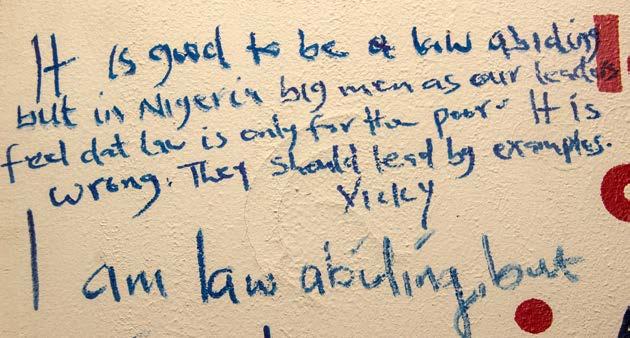 It is good to be a law abiding
but in Nigeria big men as our leaders
feel dat law is only for the poor. It is
wrong. They should lead by examples.
Vicky
I am law abiding, but